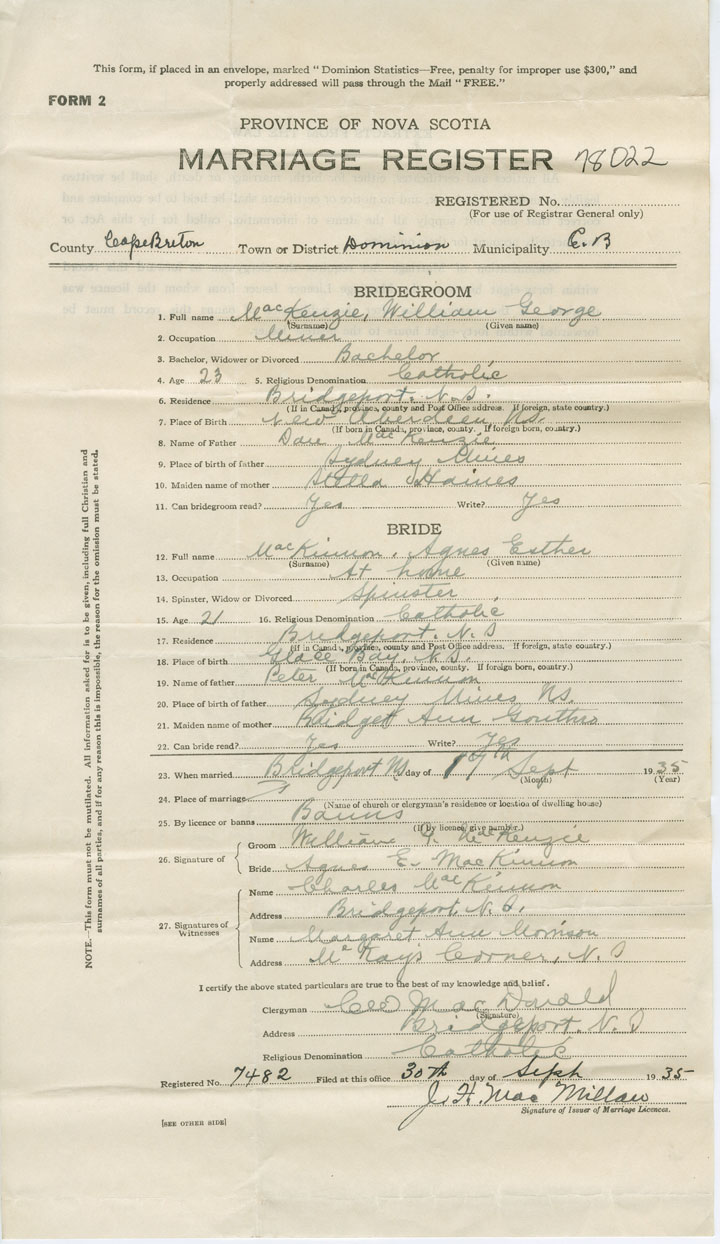 This form, if placed in an envelope, marked "Dominion Statistics—Free, penalty for improper use $300," and
properly addressed will pass through the Mail "FREE."
FORM 2
PROVINCE OF NOVA SCOTIA
MARRIAGE REGISTER 78022
REGISTERED No.
(For use of Registrar General only)
County Cape Breton Town or District Dominion Municipality C.B
BRIDEGROOM
1. Full name MacKenzie, William George
(Surname) (Given name)
2. Occupation Miner
3. Bachelor, Widower or Divorced Bachelor
4. Age 23 5. Religious Denomination Catholic
6. Residence Bridgeport. N.S.
(If in Canada, province, county and Post Office address. If foreign, state country.)
7. Place of Birth New Aberdeen NS.
(If born in Canada, province, county. If foreign born, country.)
8. Name of Father Dan MacKenzie
9. Place of birth of father Sydney Mines
10. Maiden name of mother Stella Haines
11. Can bridegroom read? Yes Write? Yes
BRIDE
12. Full name MacKinnon, Agnes Esther
(Surname) (Given name)
13. Occupation At home
14. Spinster, Widow or Divorced Spinster
15. Age 21 16. Religious Denomination Catholic
17. Residence Bridgeport. N.S
(If in Canada, province, county and Post Office address. If foreign, state country.)
18. Place of birth Glace Bay, N.S.
(If born in Canada, province, county. If foreign born, country.)
19. Name of father Peter McKinnon
20. Place of birth of father Sydney Mines NS.
21. Maiden name of mother Bridget Ann Gouthro
22. Can bride read? Yes Write? Yes
23. When married Bridgeport NS day of 17th Sept 1935
(Month) (Year)
24. Place of marriage
(Name of church or clergyman's residence or location of dwelling house)
25. By licence or banns Banns
(If by licence, give number.)
26. Signature of
Groom William G. MacKenzie
Bride Agnes E. MacKinnon
27. Signatures of Witnesses
Name Charles MacKinnon
Address Bridgeport, N.S.
Name Margaret Ann Morrison
Address McKays Corner, N.S
I certify the above stated particulars are true to the best of my knowledge and belief.
Clergyman MacDonald
(Signature)
Address Bridgeport. N.S
Religious Denomination Catholic
Registered No. 7482 Filed at this office 30th day of Sept 1935
J. H. MacMillan
Signature of Issuer of Marriage Licences.
[SEE OTHER SIDE]
NOTE.—This form must not be mutilated. All information asked for is to be given, including full Christian and
surnames of all parties, and if for any reason this is impossible, the reason for the omission must be stated.